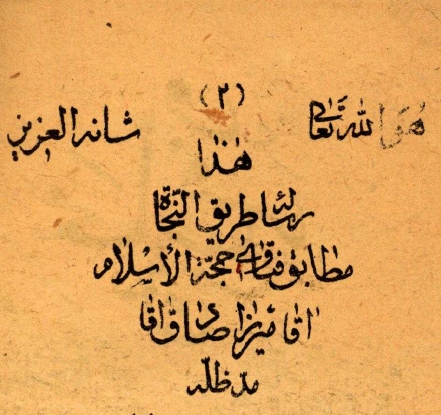 (۲)
هو الله تعالی شانه العزیز
هذا
رسالة طریق النجاة
مطابق فتاوای حجة الأسلام
اقا میرزا صادق اقا
مد ظله